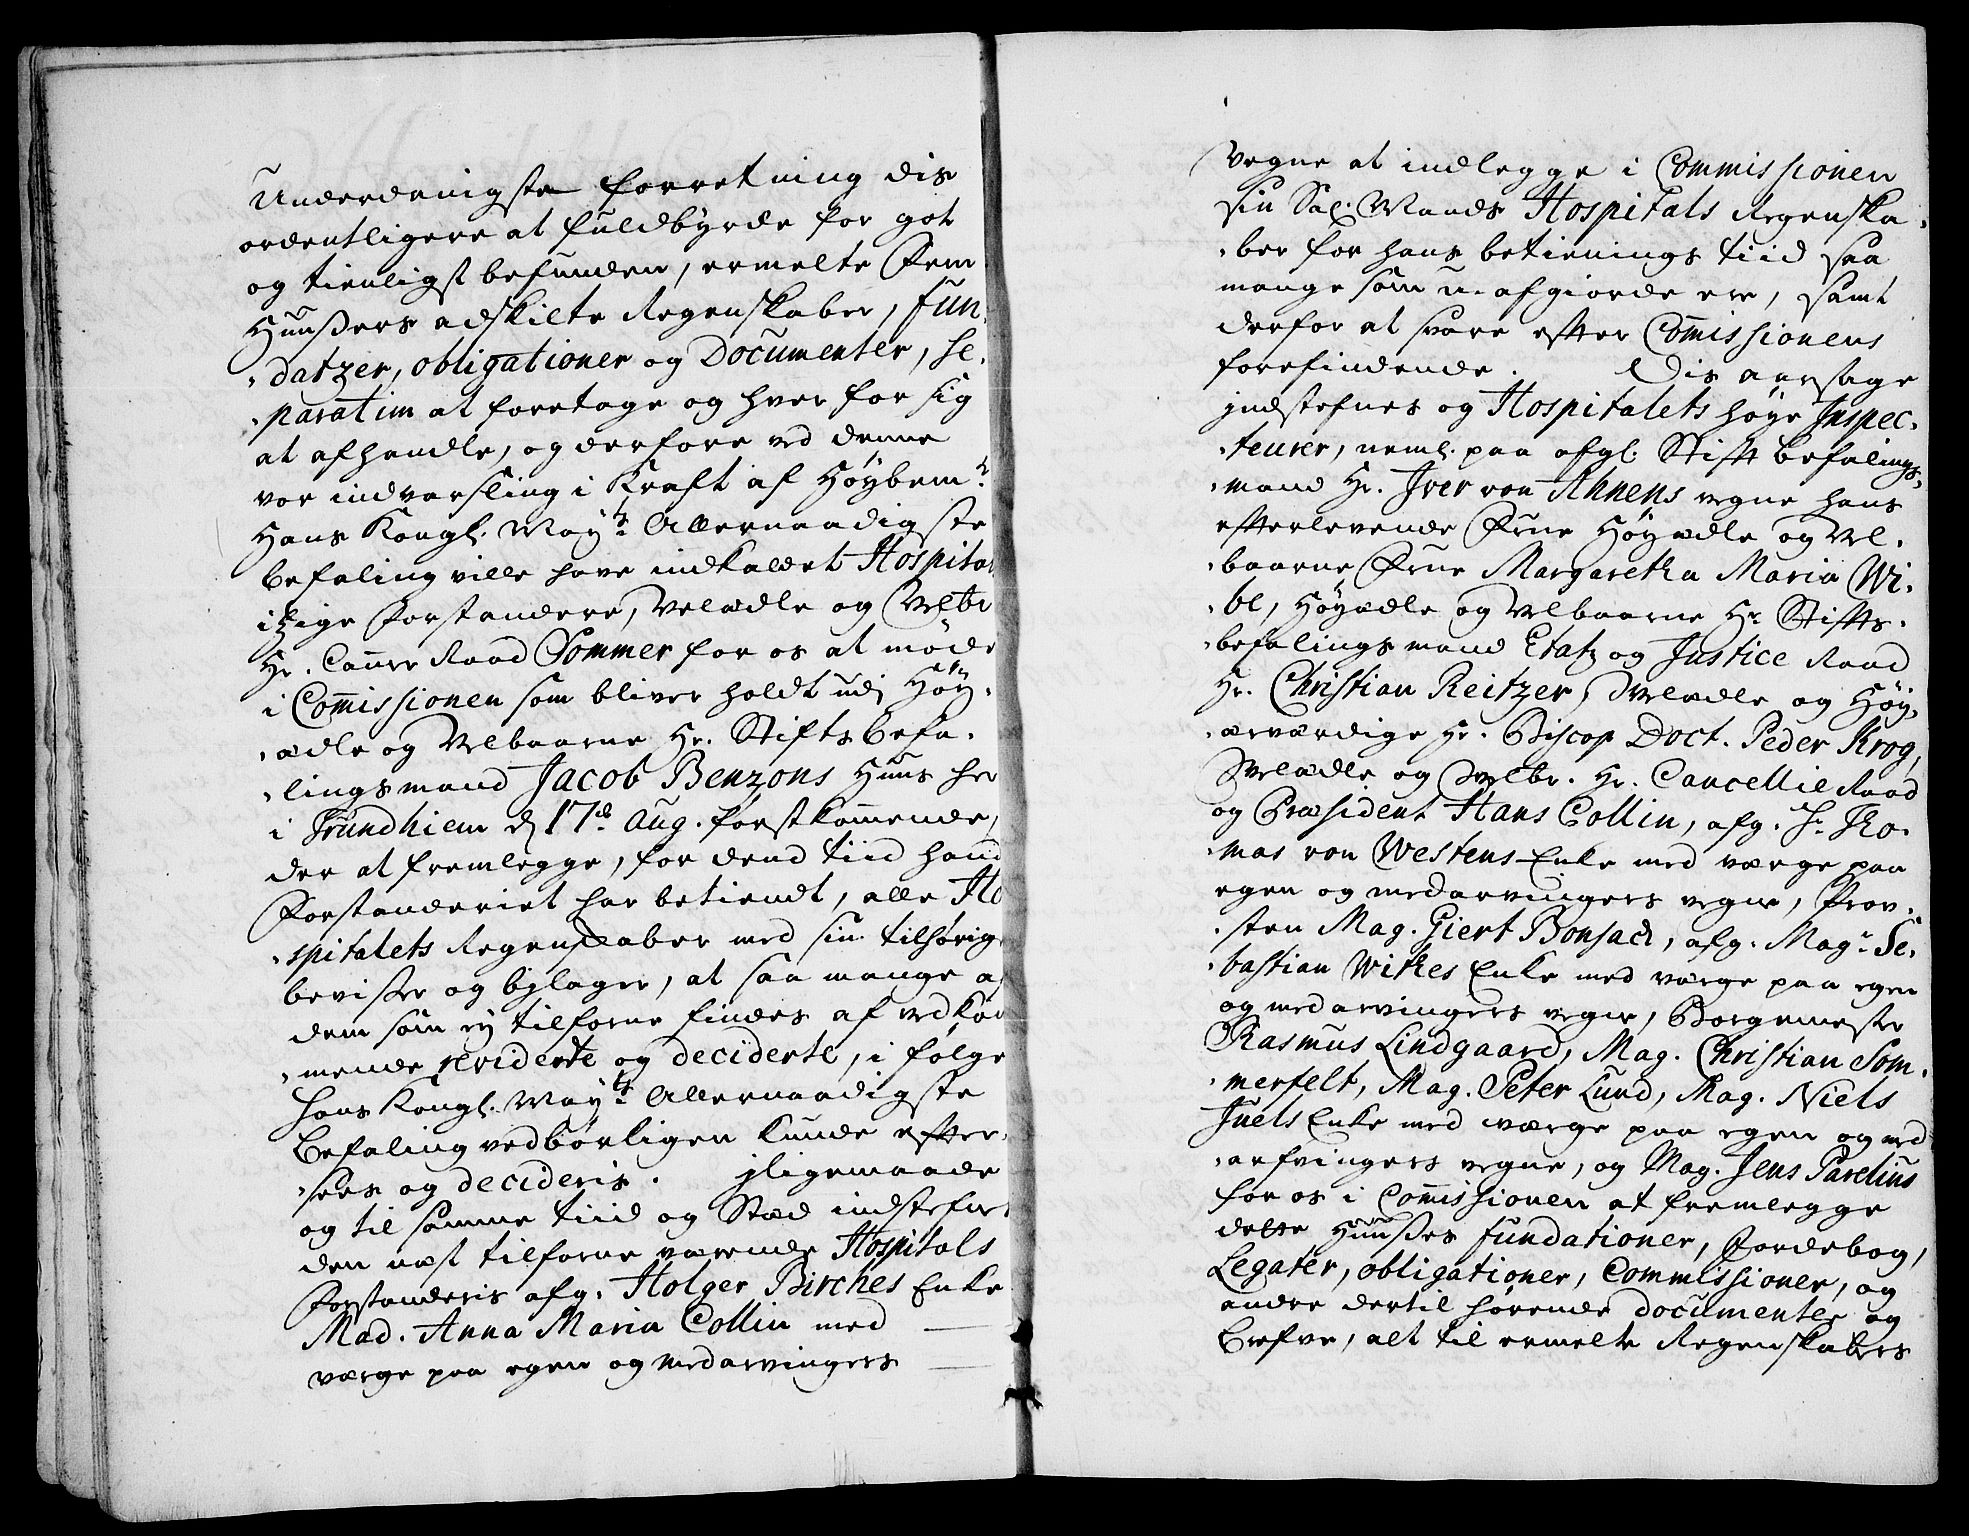 Underdanigste forretning dis
ordentligere at fuldbyrde for got
og tienligst befunden, ermelte Fem
Huußers adskilte Regenskaber, fun-
-datzer, obligationer og Documenter, se-
-paratim at foretage og hver for sig
at afhandle, og derfore ved denne
vor indvarsling i Kraft af Høybemte
Hans Kongl. Mayts Allernaadigste
befaling ville have indkaldet Hospital
itzige Forstandere, Velædle og Velbr
Hr. Cancr Raad Sommer for os at møde
i Com̄issionen som bliver holdt udj Høy-
-ædle og Velbaarne Hr. Stifts befa-
-lingsmand Jacob Benzons Huus her
i Trundhiem d 17de Aug. førstkom̄ende,
der at fremlegge, for dend tiid hand
Forstanderiet har betiendt, alle Ho
-spitalets Regenskaber med sin tilhørige
bevißer og bylager, at saa mange af
dem som ey tilforne findes af vedkom
-mende reviderte og deciderte, i følge
Hans Kongl. Mayts Allernaadigste
Befaling vedbørligen kunde efter-
-sees og decideris. jligemaade
og til samme tiid og Stæd indstefnes
den næst tilforne værende Hospitals
Forstanderis afg. Holger Birches Enke
Mad. Anna Maria Collin med
værge paa egen og medarvingers
Vegne at indlegge i Commissionen
sin Sal. Mands Hospitals Regenska-
-ber for hans betienings tiid saa
mange som u-afgiorde ere, samt
derfor at svare efter Com̄issionens
forefindende. Dis aarsage
jndstefnes og Hospitalets høye Inspec-
-teurer, neml. paa afgl. Stift befalings-
-mand Hr. Iver von Ahnens vegne hans
efterlevende Frue Høyædle og Vel-
-baarne Frue Margaretha Maria Wi-
-be, Høyædle og Velbaarne Hr Stifts-
-befalingsmand Etatz og Justice Raad
Hr. Christian Reitzer, Velædle og Høy-
-ærværdige Hr. Biscop Doct. Peder Krog,
Velædle og Velbr. Hr. Cancellie Raad
og Præsident Hans Collin, afg. Hr Tho-
-mas von Westens Enke med værge paa
egen og medarvingers vegne, Prov-
-sten Mag. Giert Bonsach, afg. Magr Se-
-bastian Withes Enke med værge paa egen
og medarvingers vegne, Borgemester
Rasmus Lindgaard, Mag. Christian Som-
-merfelt, Mag. Peter Lund, Mag. Niels
Juels Enke med værge paa egen og med
-arfvingers vegne, og Mag. Jens Parelius
for os i Com̄issionen at fremlegge
dette Huußes fundationer, Jordebog,
Legater, obligationer, Commissioner, og
andre dertil hørende documenter og
Brefve, alt til ermelte Regenskabers